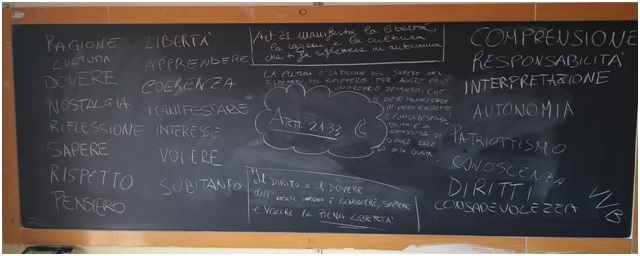 RAGIONE
CULTURA
DOVERE
NOSTALGIA
RIFLESSIONE
SAPERE
RISPETTO
PENSIERO
LIBERTÀ
APPRENDERE
COERENZA
MANIFESTARE
INTERESSE
VOLERE
SUBITANEO
Art 21 manifesta la libertà,
la ragione e la cultura
che ti fa riflettere in autonomia
LA CULTURA È LA RAGIONE DEL SAPERE DEL
RISPETTARE, DEL RIFLETTERE PER AVERE POI
UN PROPRIO PENSIERO CHE
SI DEVE MANIFESTARE
IN MODO COERENTE
ART. 21-33
Il DIRITTO e il DOVERE
dell' È CONOSCERE, SAPERE
E VOLERE LA PIENA LIBERTÀ
COMPRENSIONE
RESPONSABILITÀ
INTERPRETAZIONE
AUTONOMIA
PATRIOTTISMO
CONOSCENZA
DIRITTI
CONSAPEVOLEZZA